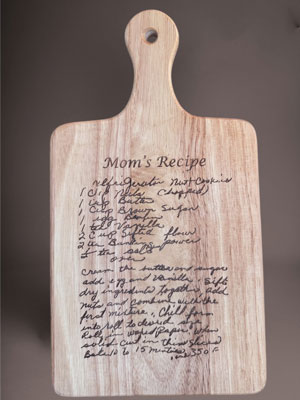 Mom's Recipe
Refrigerator Nut Cookies
1 Cup Nuts Chopped
1 Cup Butter
1 Cup Brown Sugar
1 egg
1 tea Vanilla
2 Cup Sifted flour
2
tea salt
oven
Cream the butter and sugar
add egg and Vanilla. Sift
dry ingredients together add
nuts and combine with the
first mixture. Chill form
into roll to desired size
Roll in waxed Paper. When
solid cut in thin slices
Bake 10 to 15 minutes in 350°